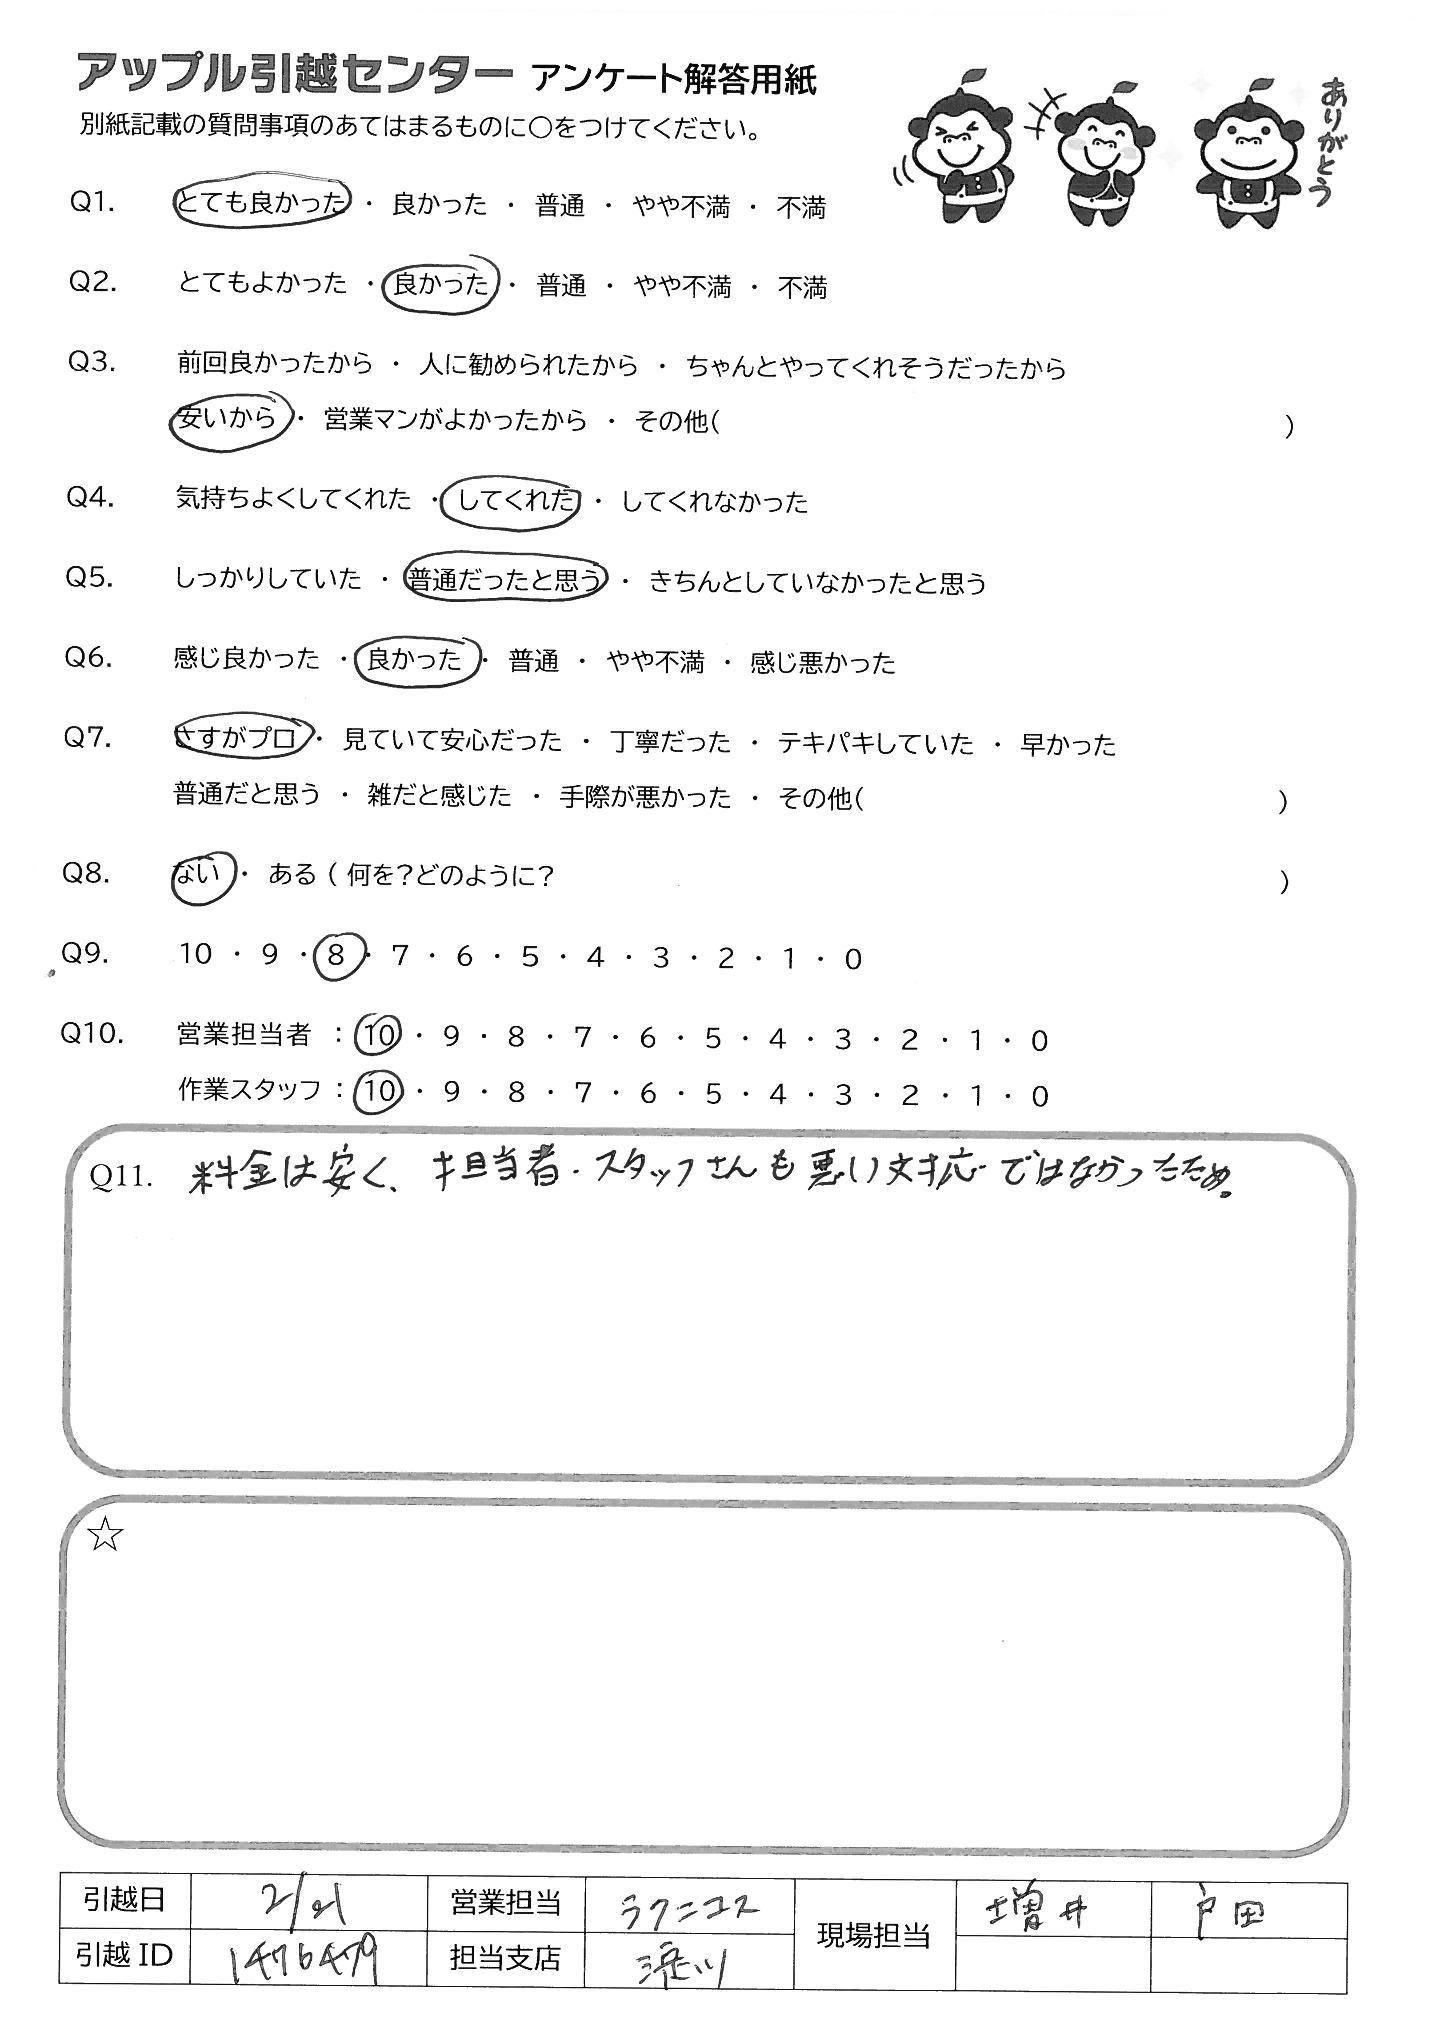 アップル引越センター アンケート解答用紙
別紙記載の質問事項のあてはまるものに○をつけてください。
ありがとう
Q1. とても良かった ・ 良かった ・ 普通 ・ やや不満 ・ 不満
Q2. とてもよかった ・ 良かった ・ 普通 ・ やや不満 ・ 不満
Q3. 前回良かったから ・ 人に勧められたから ・ ちゃんとやってくれそうだったから
安いから ・ 営業マンがよかったから ・ その他( )
Q4. 気持ちよくしてくれた ・ してくれた ・ してくれなかった
Q5. しっかりしていた ・ 普通だったと思う ・ きちんとしていなかったと思う
Q6. 感じ良かった ・ 良かった ・ 普通 ・ やや不満 ・ 感じ悪かった
Q7. さすがプロ ・ 見ていて安心だった ・ 丁寧だった ・ テキパキしていた ・ 早かった
普通だと思う ・ 雑だと感じた ・ 手際が悪かった ・ その他( )
Q8. ない ・ ある ( 何を?どのように? )
Q9. 10 ・ 9 ・ 8 ・ 7 ・ 6 ・ 5 ・ 4 ・ 3 ・ 2 ・ 1 ・ 0
Q10. 営業担当者 : 10 ・ 9 ・ 8 ・ 7 ・ 6 ・ 5 ・ 4 ・ 3 ・ 2 ・ 1 ・ 0
作業スタッフ : 10 ・ 9 ・ 8 ・ 7 ・ 6 ・ 5 ・ 4 ・ 3 ・ 2 ・ 1 ・ 0
Q11. 料金は安く、担当者・スタッフさんも悪い対応ではなかったため。
☆
引越日 2/21 営業担当 ラクニコス 現場担当 増井 戸田
引越 ID 1476479 担当支店 淀川